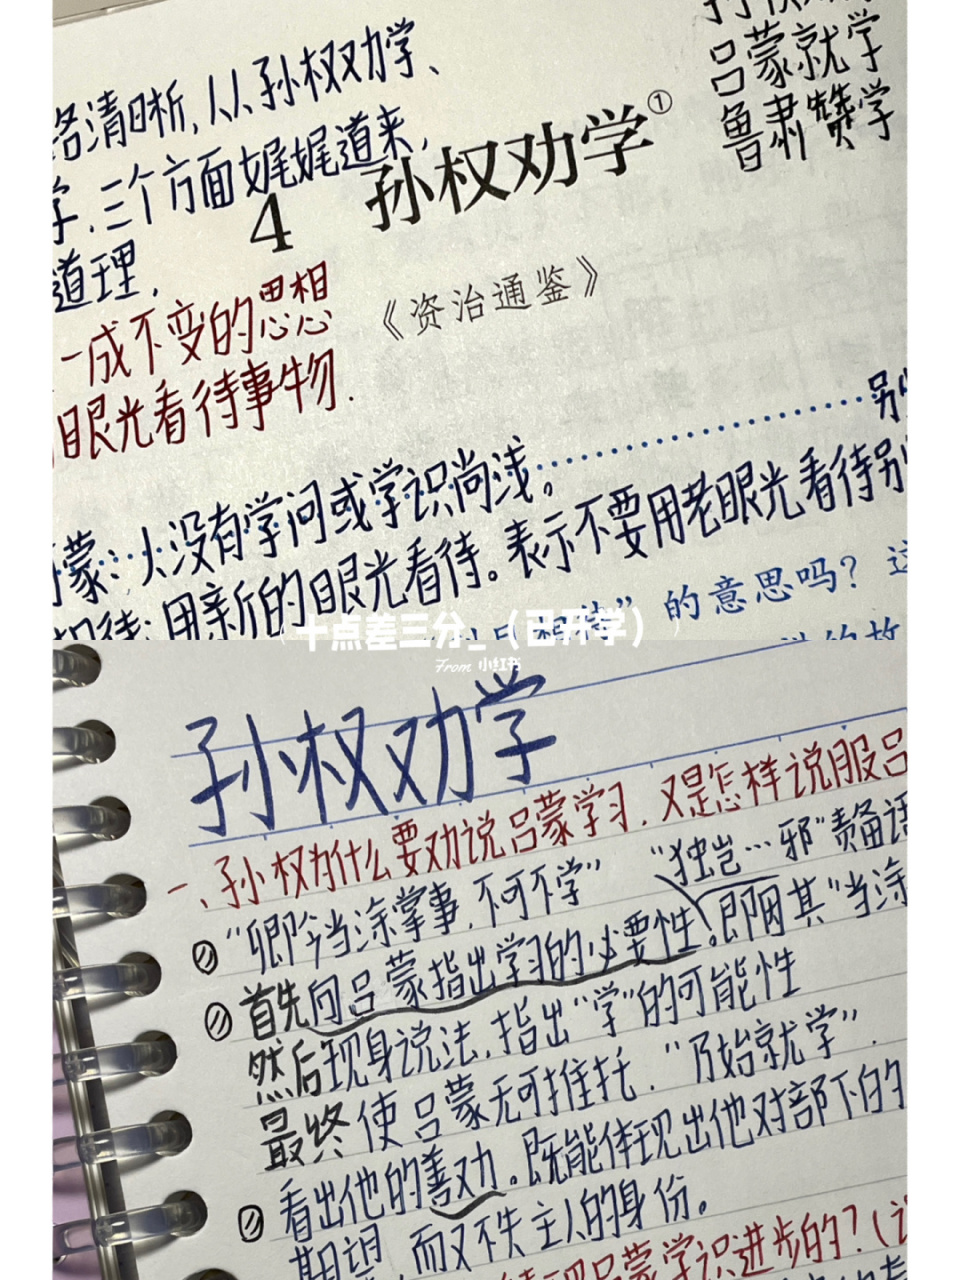 络清晰,从孙权劝学、
学.三个方面娓娓道来,
道理.
吕蒙就学
鲁肃赞学
4 孙权劝学①
《资治通鉴》
一成不变的思想
眼光看待事物.
蒙:人没有学问或学识尚浅。
相待:用新的眼光看待。表示不要用老眼光看待别
”的意思吗?这
十点差三分_(已开学)
From 小红书
孙权劝学
一、孙权为什么要劝说吕蒙学习.又是怎样说服吕
“卿今当涂掌事,不可不学” “独岂…邪”责备语
首先向吕蒙指出学习的必要性。即因其“当涂
然后现身说法,指出“学”的可能性
最终使吕蒙无可推托.“乃始就学”.
看出他的善劝。既能体现出他对部下的
期望,而又不失主人的身份。
吕蒙学识进步的?(